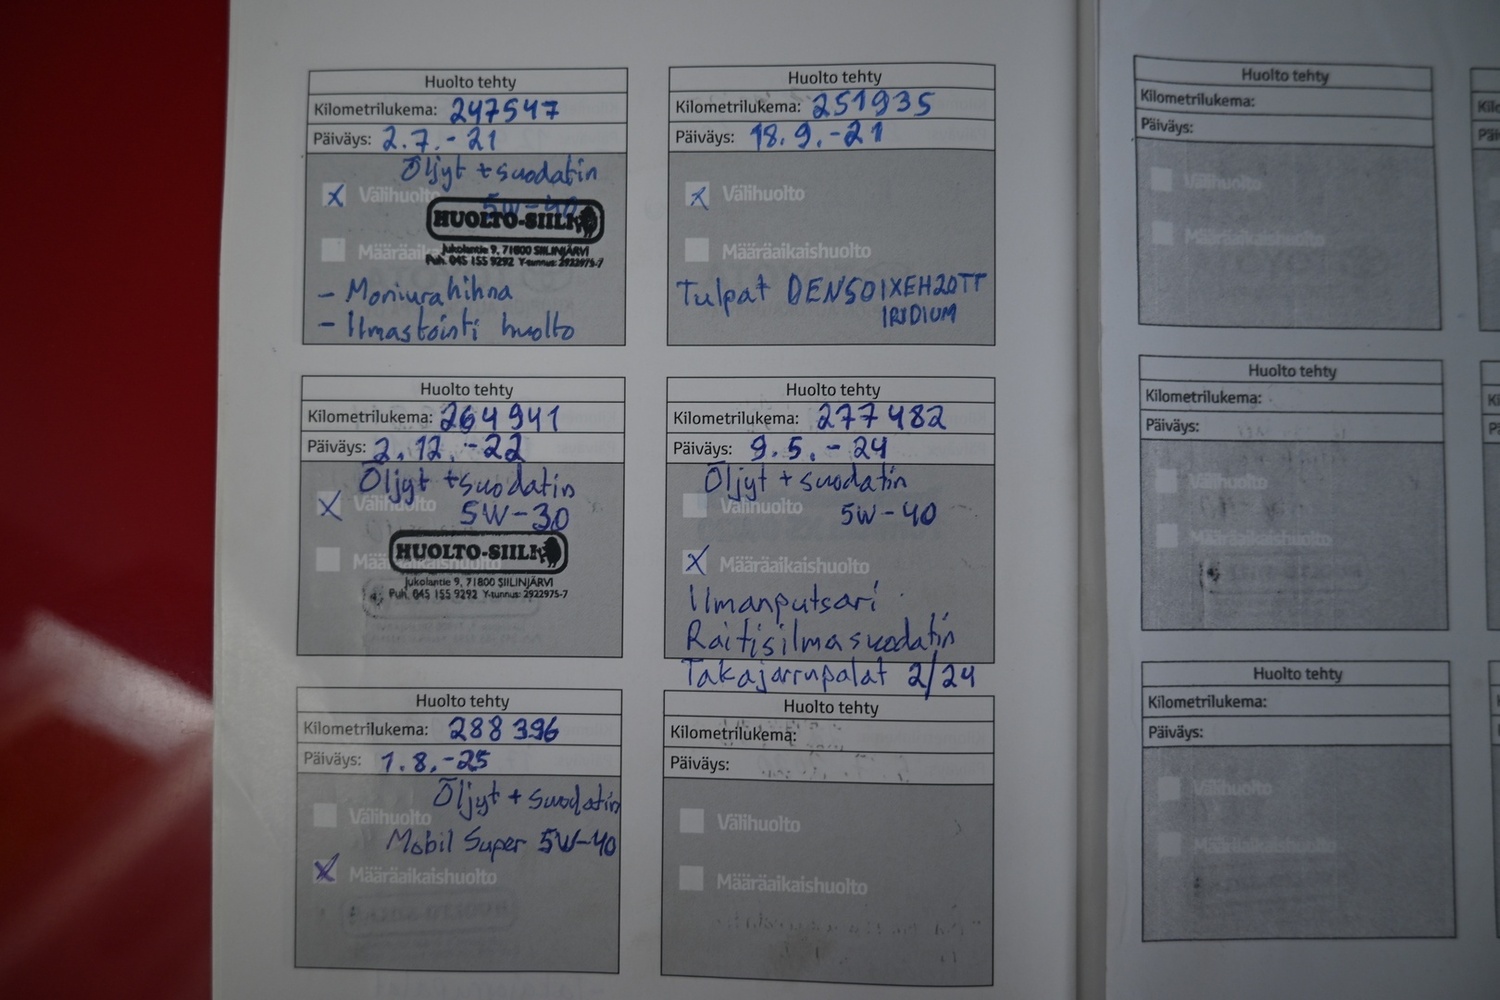 Huolto tehty
Kilometrilukema: 247547
Päiväys: 2.7.-21
Öljyt + suodatin
Välihuolto
5W-40
HUOLTO-SIILI
Jukolantie 9, 71800 SIILINJÄRVI
Puh. 045 155 9292 Y-tunnus: 2922975-7
- Moniurahihna
- Ilmastointi huolto
Huolto tehty
Kilometrilukema: 251935
Päiväys: 18.9.-21
Välihuolto
Määräaikaishuolto
Tulpat DENSO IXEH20TT
IRIDIUM
Huolto tehty
Kilometrilukema: 264941
Päiväys: 2.12.-22
Öljyt + suodatin
Välihuolto
5W-30
Määräaikaishuolto
HUOLTO-SIILI
Jukolantie 9, 71800 SIILINJÄRVI
Puh. 045 155 9292 Y-tunnus: 2922975-7
Huolto tehty
Kilometrilukema: 277482
Päiväys: 9.5.-24
Öljyt + suodatin
Välihuolto
5W-40
Määräaikaishuolto
Ilmanputsari
Raitisilmasuodatin
Takajarrupalat 2/24
Huolto tehty
Kilometrilukema: 288396
Päiväys: 1.8.-25
Öljyt + suodatin
Välihuolto
Mobil Super 5W-40
Määräaikaishuolto
Huolto tehty
Kilometrilukema:
Päiväys:
Välihuolto
Määräaikaishuolto
Huolto tehty
Kilometrilukema:
Päiväys:
Välihuolto
Määräaikaishuolto
Huolto tehty
Kilometrilukema:
Päiväys:
Välihuolto
Määräaikaishuolto
Huolto tehty
Kilometrilukema:
Päiväys:
Välihuolto
Määräaikaishuolto